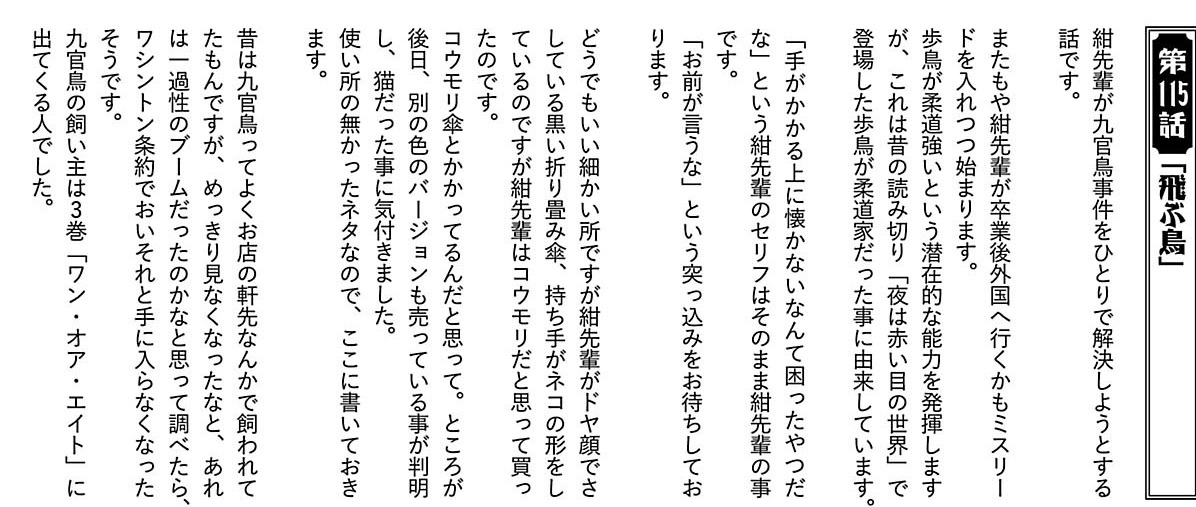 第115話「飛ぶ鳥」
紺先輩が九官鳥事件をひとりで解決しようとする
話です。
またもや紺先輩が卒業後外国へ行くかもミスリー
ドを入れつつ始まります。
歩鳥が柔道強いという潜在的な能力を発揮します
が、これは昔の読み切り「夜は赤い目の世界」で
登場した歩鳥が柔道家だった事に由来しています。
「手がかかる上に懐かないなんて困ったやつだ
な」という紺先輩のセリフはそのまま紺先輩の事
です。
「お前が言うな」という突っ込みをお待ちしてお
ります。
どうでもいい細かい所ですが紺先輩がドヤ顔でさ
している黒い折り畳み傘、持ち手がネコの形をし
ているのですが紺先輩はコウモリだと思って買っ
たのです。
コウモリ傘とかかってるんだと思って。ところが
後日、別の色のバージョンも売っている事が判明
し、猫だった事に気付きました。
使い所の無かったネタなので、ここに書いておき
ます。
昔は九官鳥ってよくお店の軒先なんかで飼われて
たもんですが、めっきり見なくなったなと、あれ
は一過性のブームだったのかなと思って調べたら、
ワシントン条約でおいそれと手に入らなくなった
そうです。
九官鳥の飼い主は3巻「ワン・オア・エイト」に
出てくる人でした。